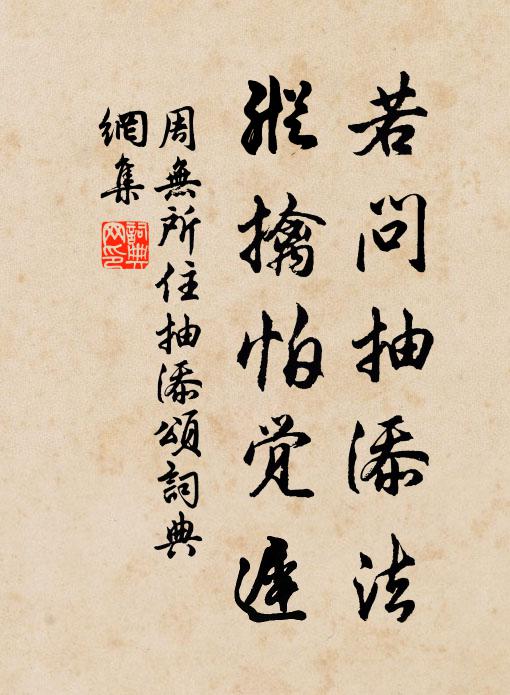 若问抽添法
纵擒怕觉迟
周無所住抽添頌詞典
網集
詞典
网印